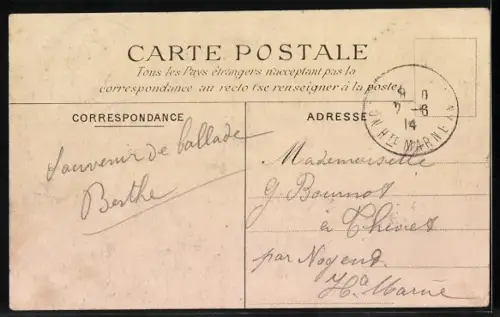 CARTE POSTALE
Tous les Pays étrangers n'acceptant pas la
correspondance au recto (se renseigner à la poste)
CORRESPONDANCE
ADRESSE
14
ON HTE MARNE
Souvenir de ballade
Berthe
Mademoiselle
G Bournot
à Thivet
par Nogent
Hte Marne